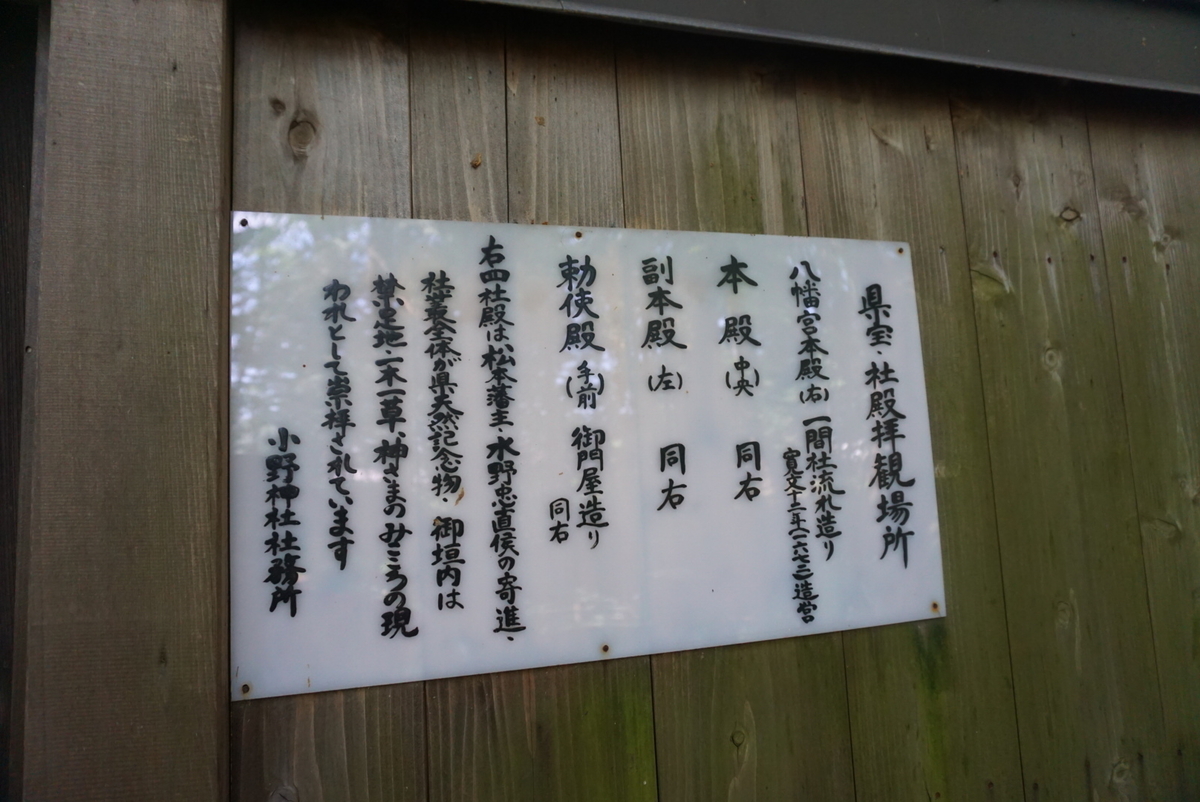 県宝・社殿拝観場所
八幡宮本殿(右) 一間社流れ造り
寛文十二年(一六七二)造営
本殿(中央) 同右
副本殿(左) 同右
勅使殿(手前) 御門屋造り
同右
右四社殿は、松本藩主・水野忠直侯の寄進、
社叢全体が県天然記念物、御垣内は
禁足地・一木一草、神さまのみこころの現
われとして崇拝されています
小野神社社務所